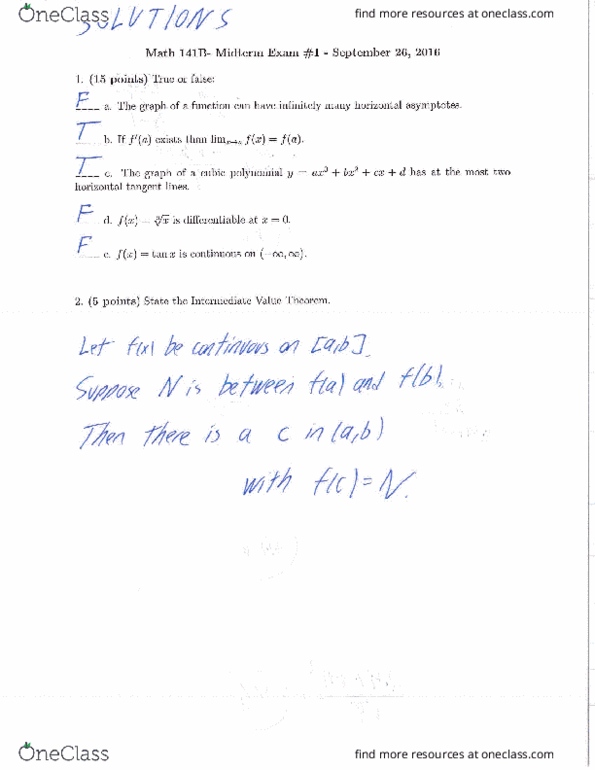 OneClass
SOLUTIONS
find more resources at oneclass.com
Math 141B- Midterm Exam #1 - September 26, 2016
1. (15 points) True or false:
F a. The graph of a function can have infinitely many horizontal asymptotes.
T b. If f′(a) exists then limₓ→ₐ f(x) = f(a).
T c. The graph of a cubic polynomial y = ax³ + bx² + cx + d has at the most two
horizontal tangent lines.
F d. f(x) = ∛x is differentiable at x = 0.
F e. f(x) = tan x is continuous on (−∞, ∞).
2. (5 points) State the Intermediate Value Theorem.
Let f(x) be continuous on [a,b].
Suppose N is between f(a) and f(b).
Then there is a c in (a,b)
with f(c) = N.
OneClass
find more resources at oneclass.com